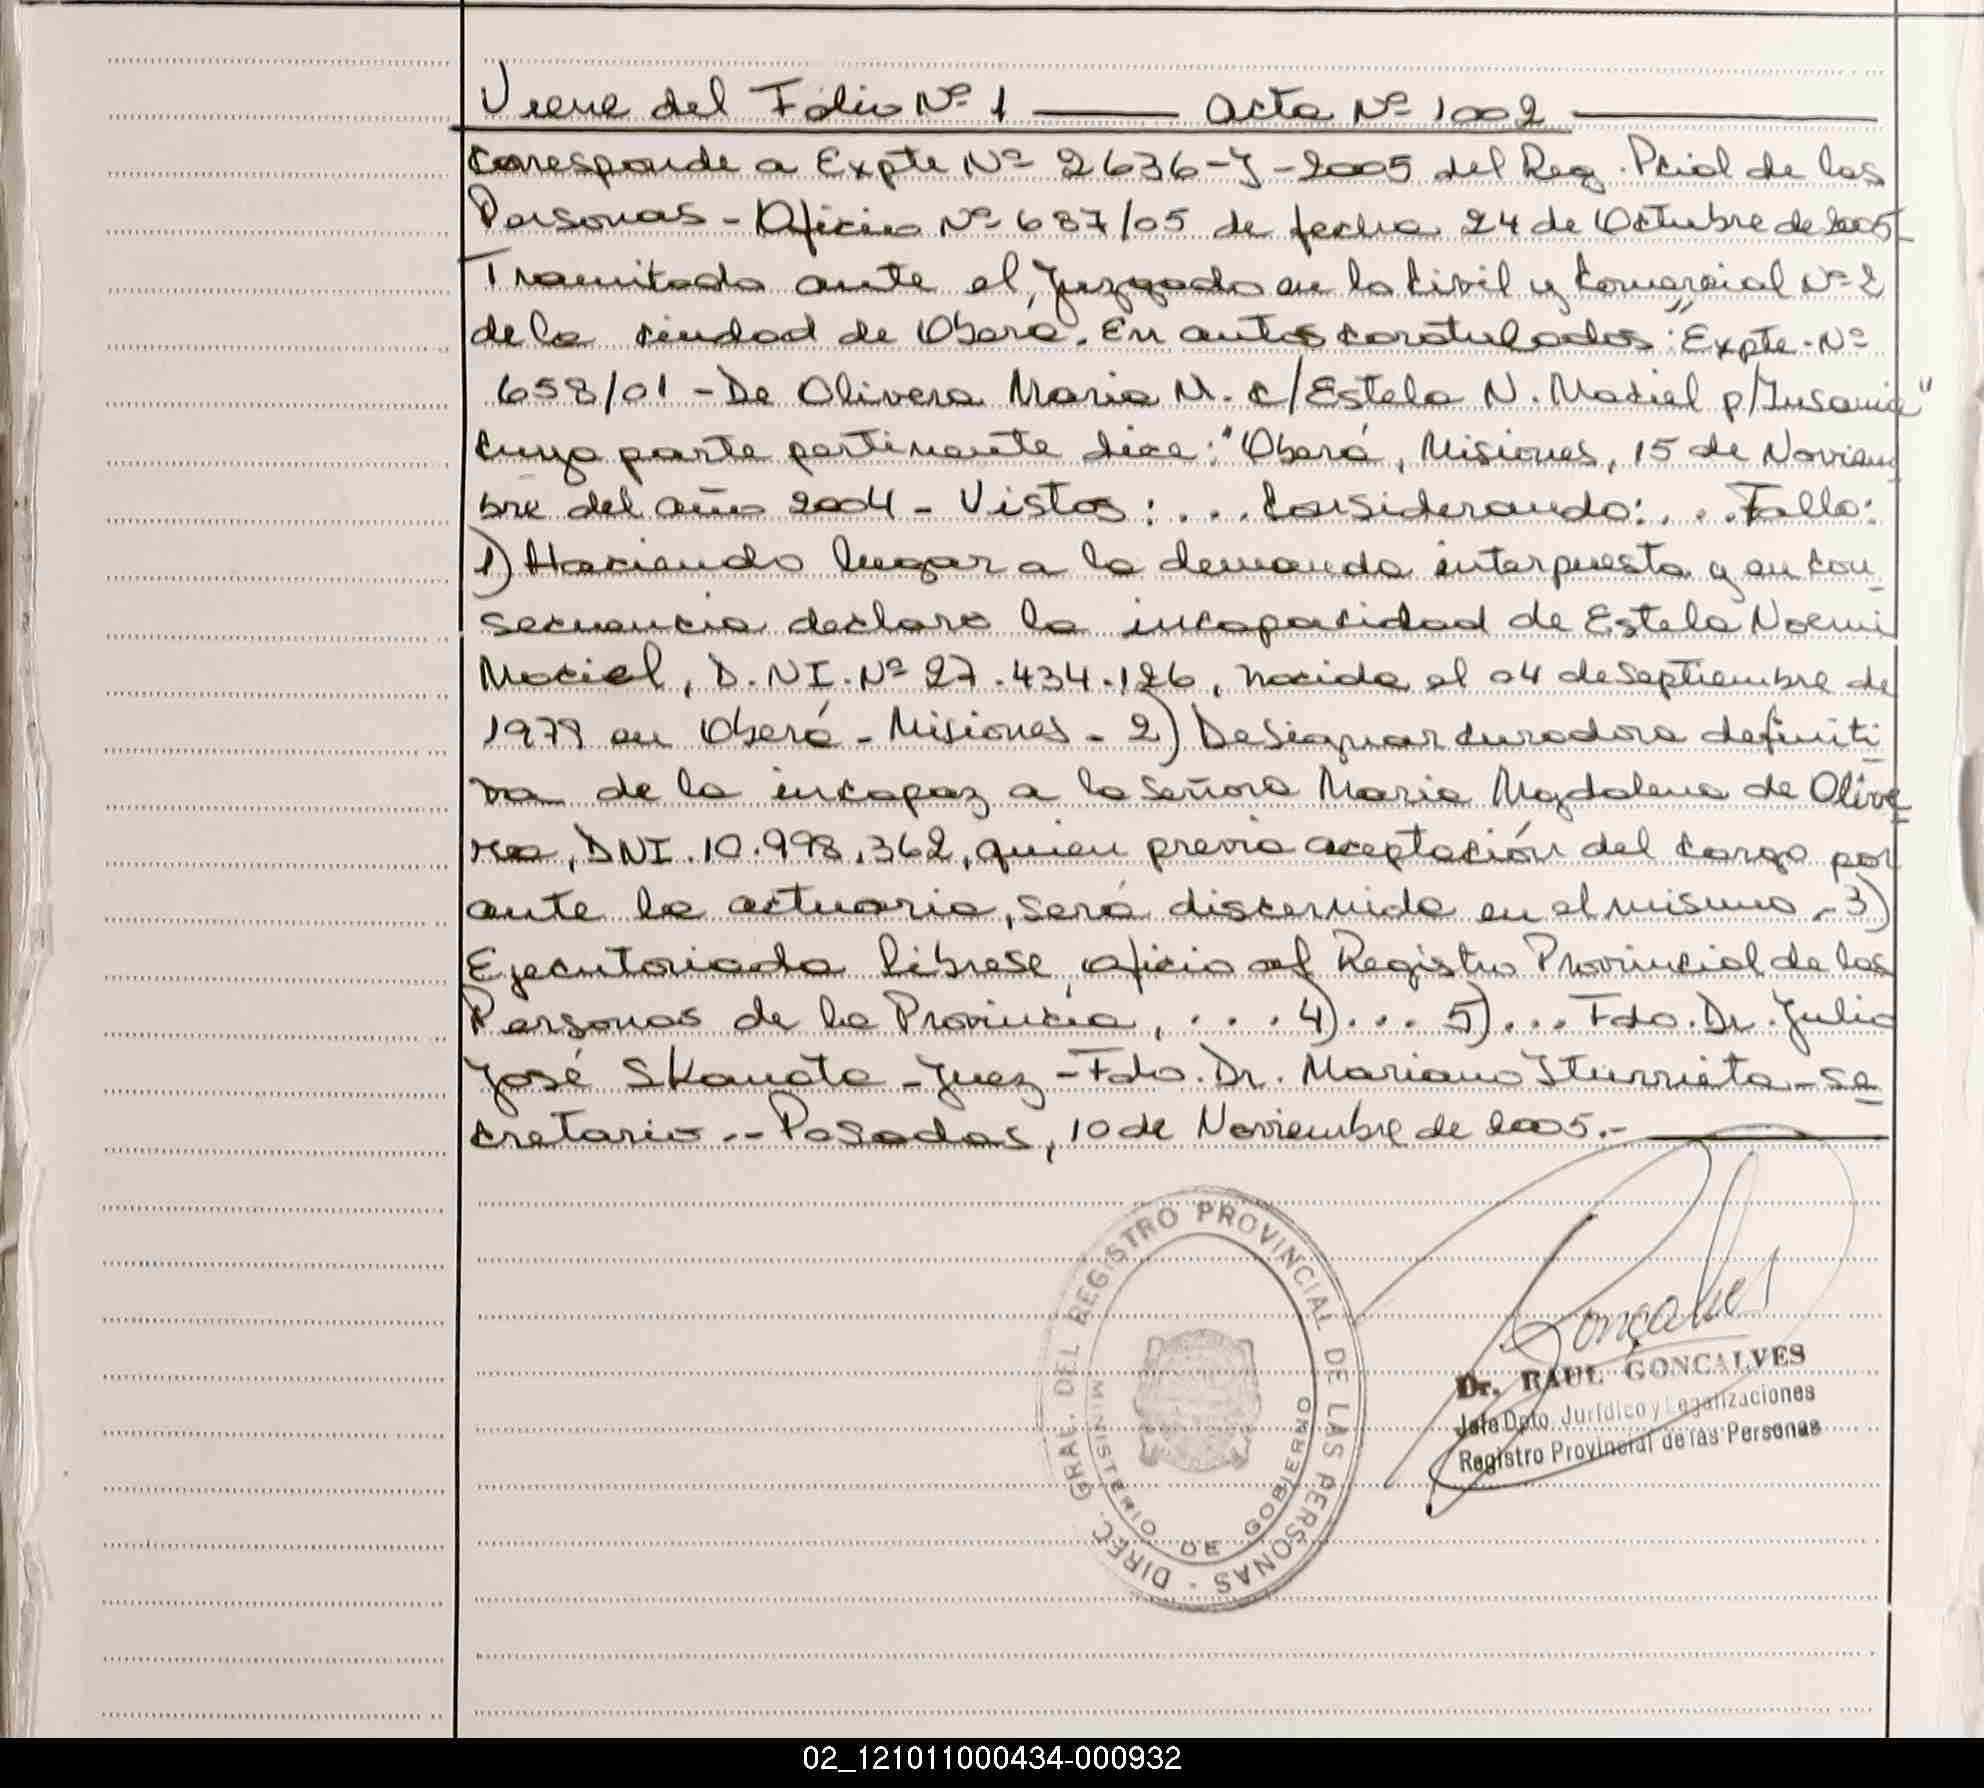 Viene del Folio Nº 1 —— Acta Nº 1002 ——
Corresponde a Expte Nº 2636-J-2005 del Reg. Pcial de las
Personas - Oficio Nº 687/05 de fecha 24 de Octubre de 2005
Tramitado ante el Juzgado en lo Civil y Comercial Nº 2
de la ciudad de Oberá. En autos caratulados: "Expte. Nº
658/01 - De Olivera Maria M. c/Estela N. Maciel p/Insania"
cuya parte pertinente dice: "Oberá, Misiones, 15 de Noviem
bre del año 2004 - Vistos: ... Considerando: ... Fallo:
1) Haciendo lugar a la demanda interpuesta y en con_
secuencia declaro la incapacidad de Estela Noemi
Maciel, D.NI. Nº 27.434.126, nacida el 04 de Septiembre de
1979 en Oberá - Misiones - 2) Designar curadora definiti_
va de la incapaz a la señora Maria Magdalena de Olive
ra, DNI. 10.998.362, quien previa aceptación del cargo por
ante la actuaria, será discernida en el mismo.- 3)
Ejecutoriada librese oficio al Registro Provincial de las
Personas de la Provincia, .... 4)... 5)... Fdo. Dr. Julio
José Skanata - Juez - Fdo. Dr. Mariano Iturrieta - se
cretario.-- Posadas, 10 de Noviembre de 2005.- ——
DIREC. GRAL. DEL REGISTRO PROVINCIAL DE LAS PERSONAS -
MINISTERIO DE GOBIERNO
Gonçalves
Dr. RAUL GONCALVES
Jefe Dpto. Jurídico y Legalizaciones
Registro Provincial de las Personas
02_121011000434-000932